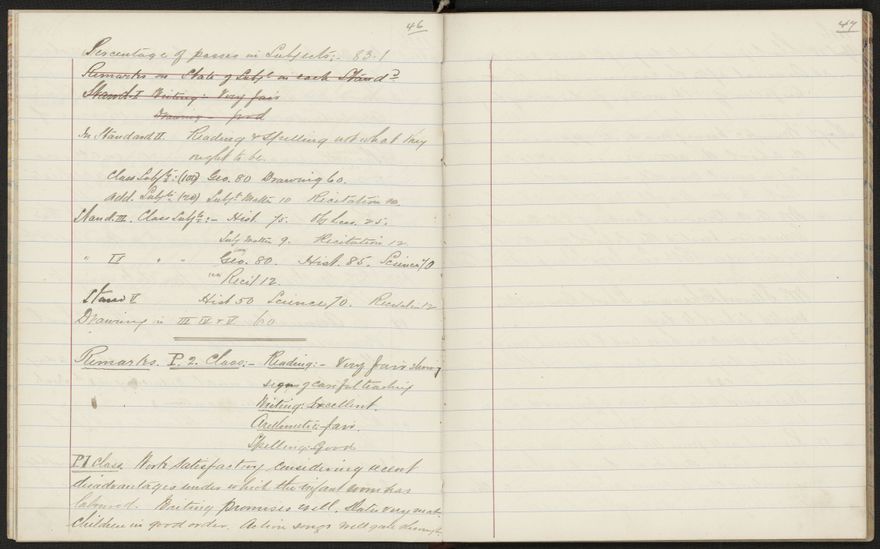 46
Percentage of passes in Subjects:- 83.1
Remarks on State of Subjt in each Standd
Stand. I Writing:- Very fair
Drawing - good
In Standard II. Reading & Spelling not what they
ought to be.
Class Subjts: (100) Geo. 80 Drawing 60.
Add. Subjts: Subjt Matter 10 Recitation 10
Stand. III. Class Subjts:- Hist. 75. Ob Less. 25.
Subj Matter 9. Recitation 12
" IV " " Geo. 80. Hist. 85. Science 70
Recit 12.
Stand V Hist 50 Science 70. Recitation 12
Drawing in III IV & V 60
Remarks. P. 2. Class:- Reading:- Very fair showing
signs of careful teaching
Writing: Excellent.
Arithmetic:- fair
Spelling:- Good
P.I Class. Work satisfactory considering recent
disadvantages under which the infant room has
laboured. Writing promises well. Slates very neat.
Children in good order. Action songs well
47